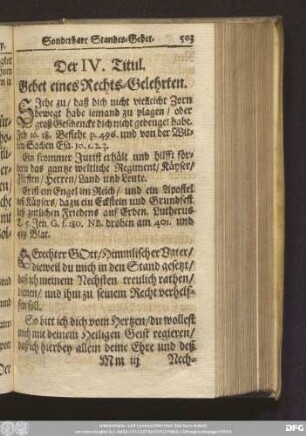 Sonderbare Standes-Gebet. 503
Der IV. Titul.
Gebet eines Rechts-Gelehrten.
SJehe zu/ daß dich nicht vielleicht Zorn
bewegt habe iemand zu plagen/ oder
groß Geschencke dich nicht gebeuget habe.
Job 36. 18. Besiehe p. 496. und von der Wit-
wen Sachen Esa. 10. 1. 2. 3.
Ein frommer Jurist erhält und hilfft för-
dern das gantze weltliche Regiment/ Käyser/
Fürsten/ Herren/ Land und Leute.
Er ist ein Engel im Reich/ und ein Apostel
des Käysers/ dazu ein Eckstein und Grundfest
des zeitlichen Friedens auf Erden. Lutherus
T. 5. Jen. G. f. 180. NB. droben am 401. und
Blat.
GErechter GOtt/ Himmlischer Vater/
Dieweil du mich in den Stand gesetzt/
daß ich meinem Nechsten treulich rathen/
dienen/ und ihm zu seinem Recht verhelf-
fen soll.
So bitt ich dich von Hertzen/ du wollest
mich mit deinem Heiligen Geist regieren/
daß ich hierbey allein deine Ehre und deß
Mm iij Nech-